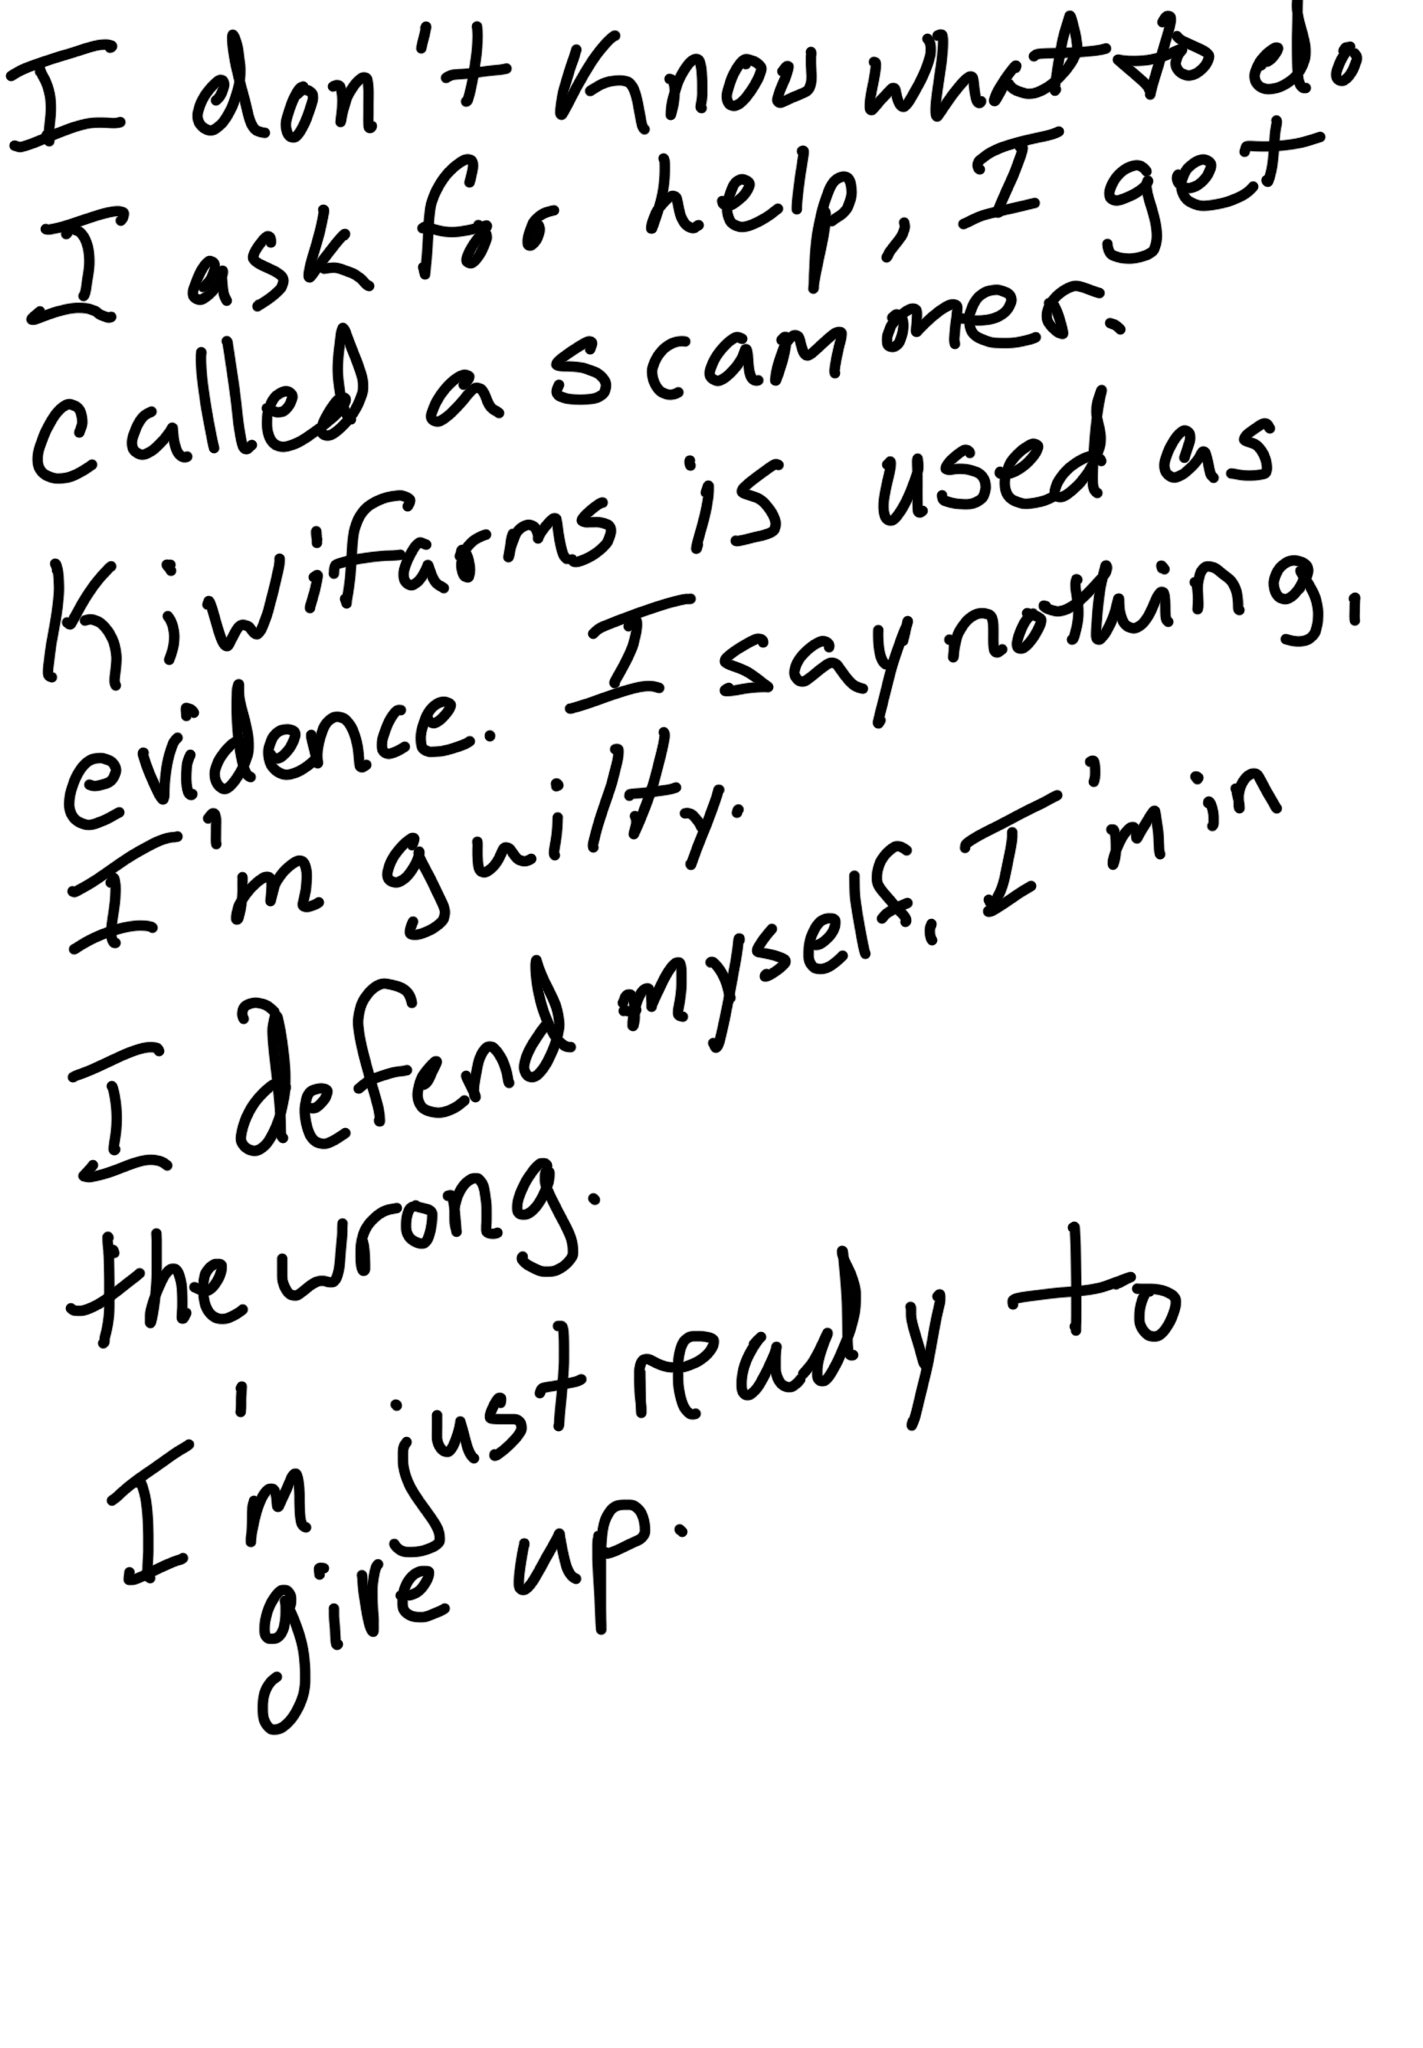 I don't know what to do
I ask for help, I get
called a scammer.
Kiwifarms is used as
evidence. I say nothing,
I'm guilty.
I defend myself, I'm in
the wrong.
I'm just ready to
give up.